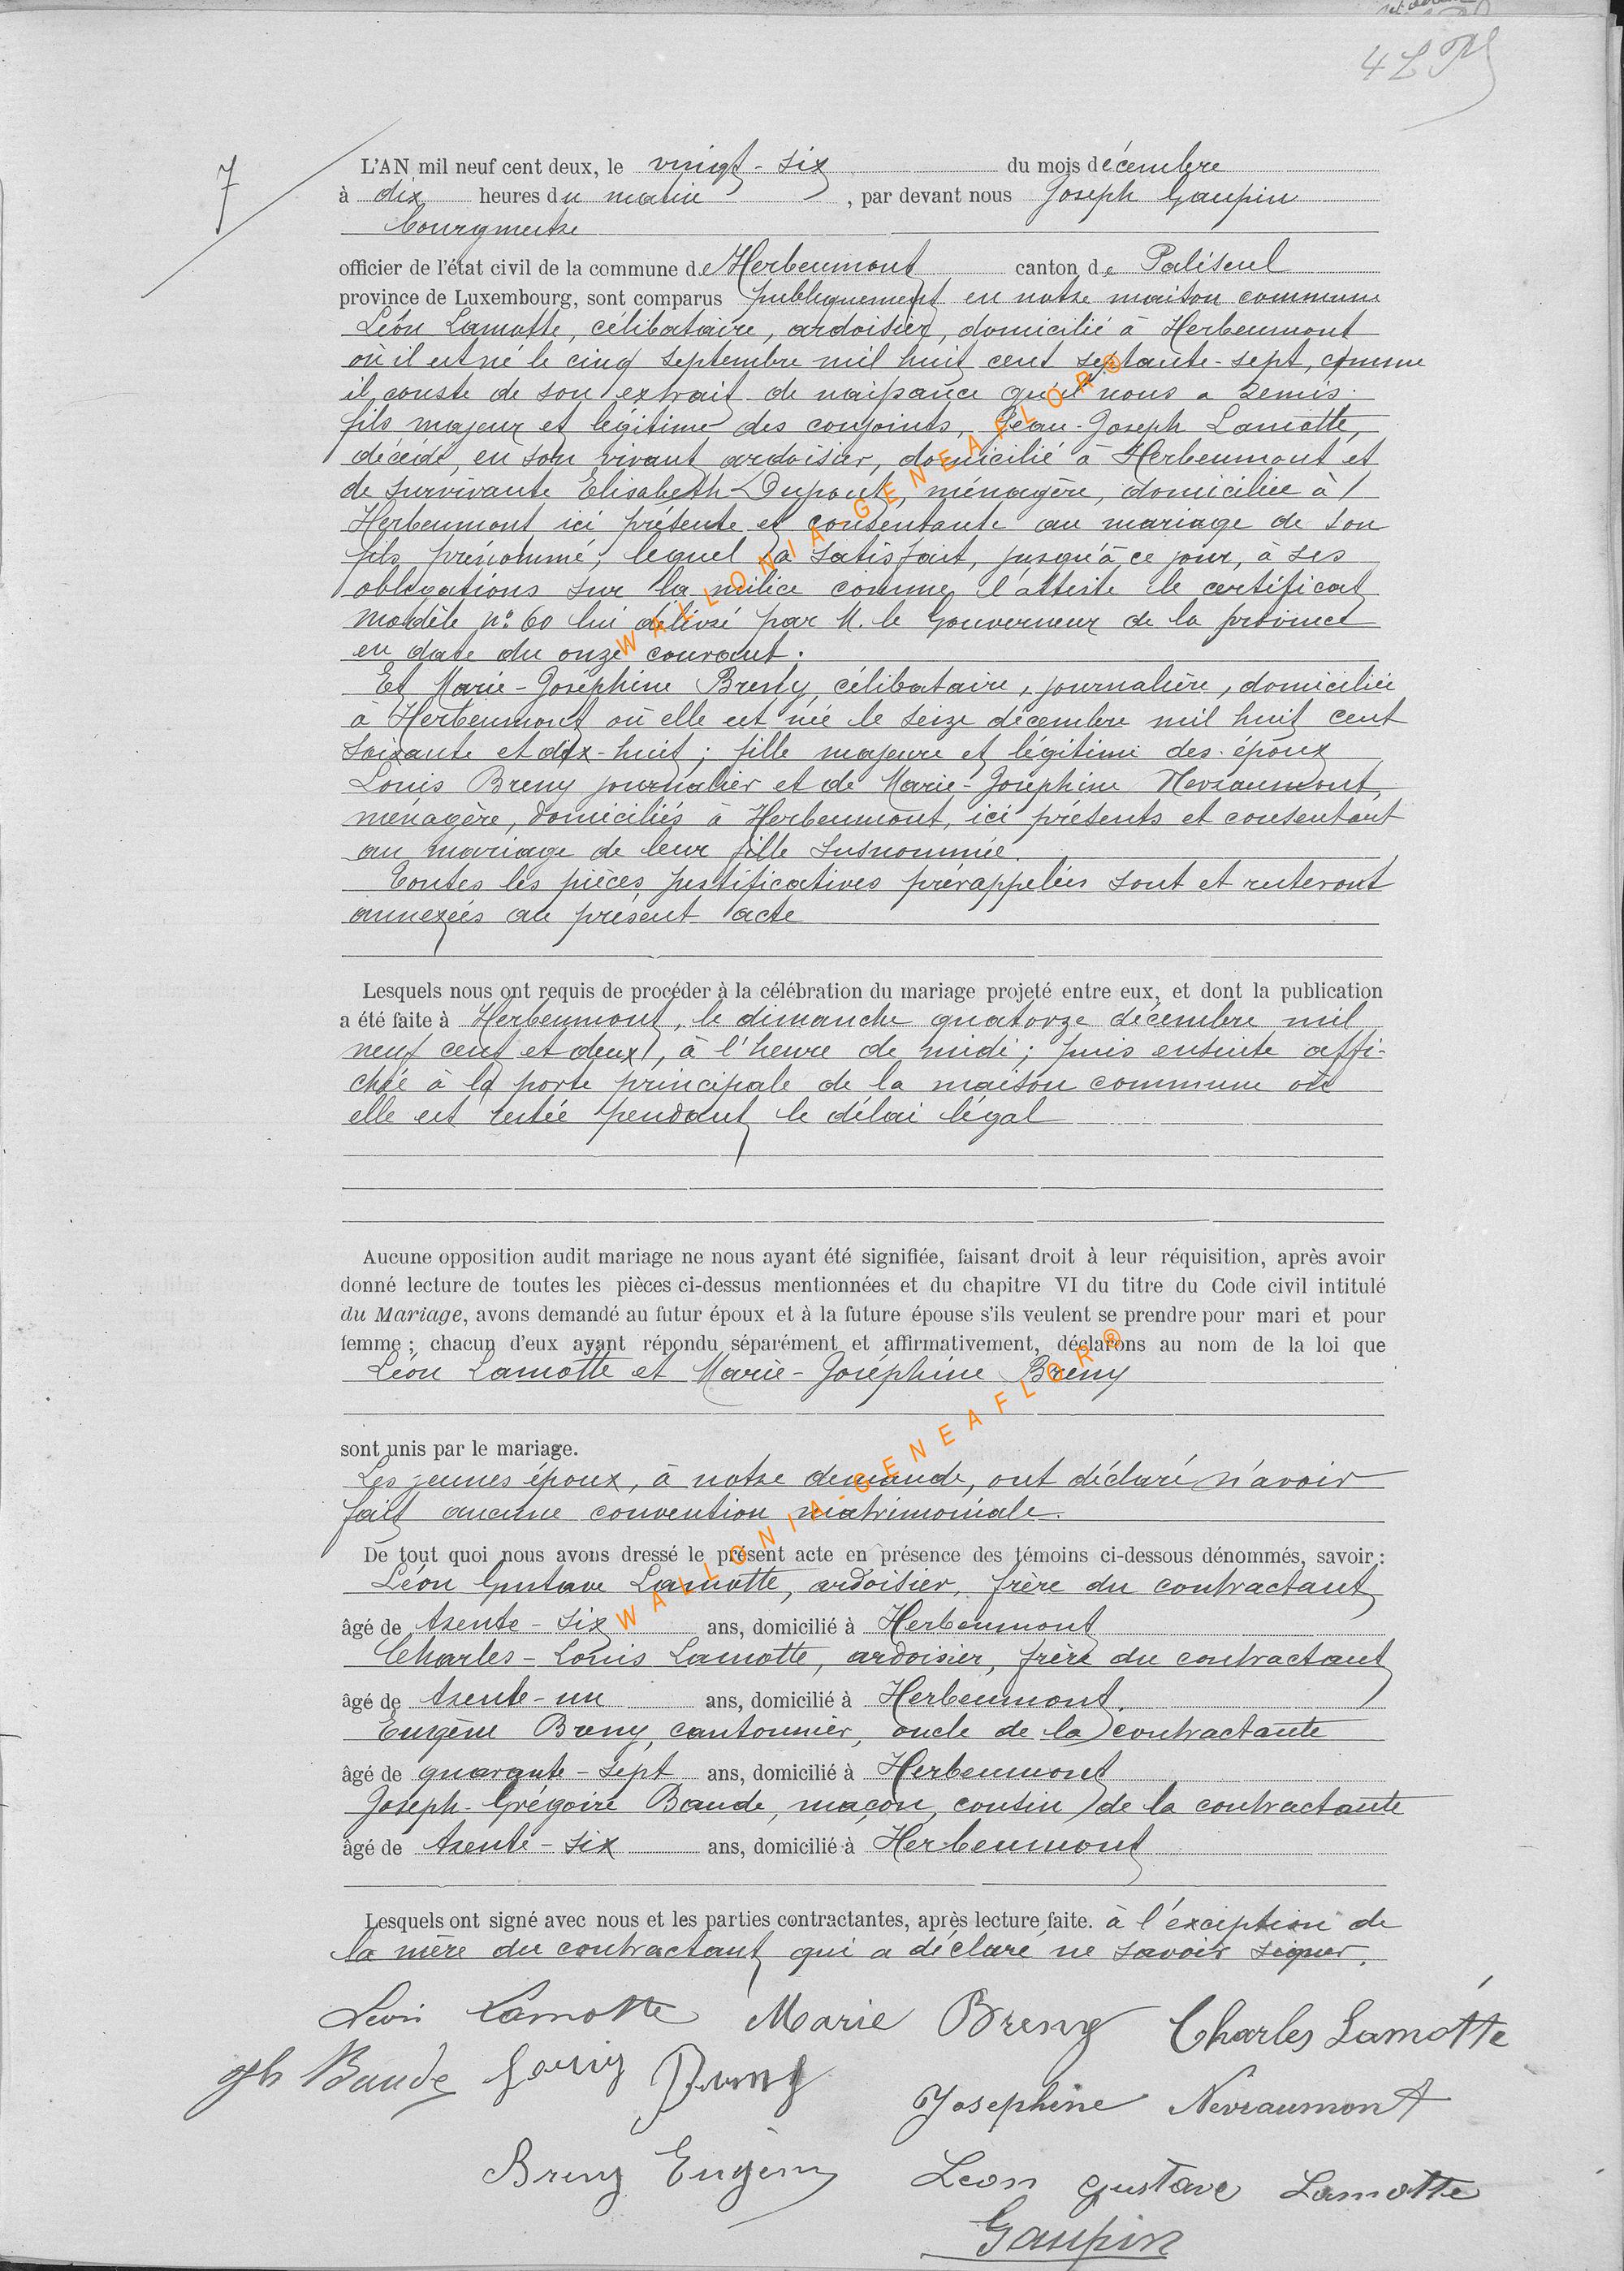 4 L M
7
L'AN mil neuf cent deux, le vingt-six du mois décembre
à dix heures du matin, par devant nous Joseph Gaupin
bourgmestre
officier de l'état civil de la commune de Herbeumont canton de Paliseul
province de Luxembourg, sont comparus publiquement en notre maison commune
Léon Lamotte, célibataire, ardoisier, domicilié à Herbeumont
où il est né le cinq septembre mil huit cent septante-sept, comme
il conste de son extrait de naissance qu'il nous a remis;
fils majeur et légitime des conjoints, Jean-Joseph Lamotte,
décédé, en son vivant ardoisier, domicilié à Herbeumont et
de survivante Elisabeth Dupont, ménagère, domiciliée à
Herbeumont ici présente et consentante au mariage de son
fils prénommé; lequel a satisfait, jusqu'à ce jour, à ses
obligations sur la milice comme l'atteste le certificat
modèle n° 60 lui délivré par M. le Gouverneur de la province
en date du onze courant.
Et Marie-Joséphine Breny, célibataire, journalière, domiciliée
à Herbeumont où elle est née le seize décembre mil huit cent
soixante et dix-huit; fille majeure et légitime des époux
Louis Breny journalier et de Marie-Joséphine Nevraumont,
ménagère, domiciliés à Herbeumont, ici présents et consentant
au mariage de leur fille susnommée.
Toutes les pièces justificatives prérappelées sont et resteront
annexées au présent acte
Lesquels nous ont requis de procéder à la célébration du mariage projeté entre eux, et dont la publication
a été faite à Herbeumont, le dimanche quatorze décembre mil
neuf cent et deux, à l'heure de midi; puis ensuite affi-
chée à la porte principale de la maison commune où
elle est restée pendant le délai légal
Aucune opposition audit mariage ne nous ayant été signifiée, faisant droit à leur réquisition, après avoir
donné lecture de toutes les pièces ci-dessus mentionnées et du chapitre VI du titre du Code civil intitulé
du Mariage, avons demandé au futur époux et à la future épouse s'ils veulent se prendre pour mari et pour
femme; chacun d'eux ayant répondu séparément et affirmativement, déclarons au nom de la loi que
Léon Lamotte et Marie-Joséphine Breny
sont unis par le mariage.
Les jeunes époux, à notre demande, ont déclaré n'avoir
fait aucune convention matrimoniale.
De tout quoi nous avons dressé le présent acte en présence des témoins ci-dessous dénommés, savoir:
Léon Gustave Lamotte, ardoisier, frère du contractant
âgé de trente-six ans, domicilié à Herbeumont
Charles-Louis Lamotte, ardoisier, frère du contractant
âgé de trente-un ans, domicilié à Herbeumont.
Eugène Breny, cantonnier, oncle de la contractante
âgé de quarante-sept ans, domicilié à Herbeumont
Joseph-Grégoire Baude, maçon, cousin de la contractante
âgé de trente-six ans, domicilié à Herbeumont
Lesquels ont signé avec nous et les parties contractantes, après lecture faite. à l'exception de
la mère du contractant qui a déclaré ne savoir signer.
Léon Lamotte Marie Breny Charles Lamotte
Jph Baude Louis Breny
Josephine Nevraumont
Breny Eugène Leon Gustave Lamotte
Gaupin
WALLONIA-GENEAFLOR®
WALLONIA-GENEAFLOR®